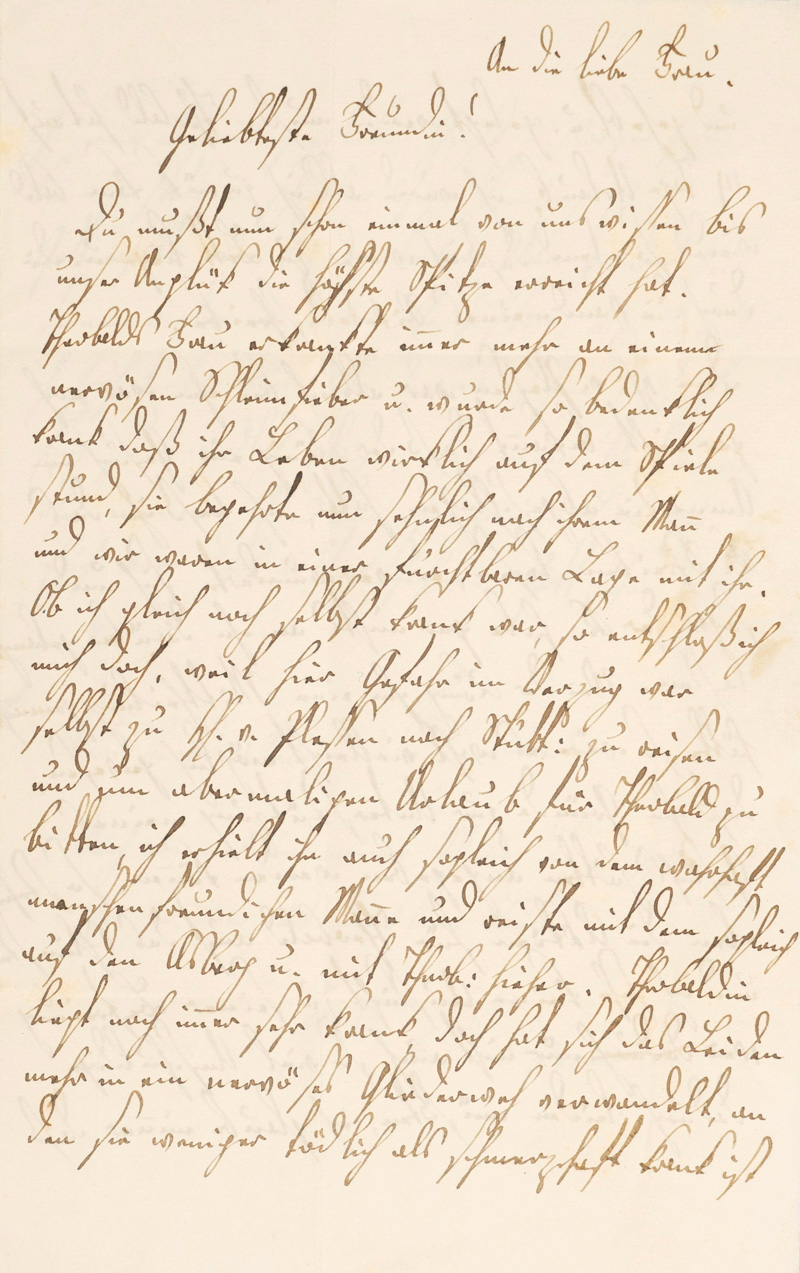 An die liebe Frau.
Geliebteste Freundin!
Du mußt nun schon einmal von uns wissen bis
unser Unglük die höchste Spitze erreicht hat.
Theobalds Frau erkrankte imer mehr an einem
nervösen Schleimfieber u. wurde so bedenklich
krank daß ihr Leben wirklich auf dem Spiele
stund, sie begehrte nun sehnlich nach ihrem Man
und wir waren in einer furchtbaren Lage mit ihr.
Ob ich gleich noch selbst krank war, so entschloß ich
mich doch, weil hier Gefahr im Verzug war
selbst zu H. v. Plessen nach Stutt: zu reisen
und um abermaligen Urlaub für Theobald zu
bitten, ich erhielt ihn auch sogleich von dem wahrhaft
menschenfreundlichen Mane und reiste mit dem sogleich
auf den Asberg u. mit Theob: hieher. Theobaldin
liegt noch imer sehr krank, doch hat sich das Leiden
mehr in ein nervöses Gliederweh verwandelt, an
den sie weniger tödlich als schmerzhaft krank ist